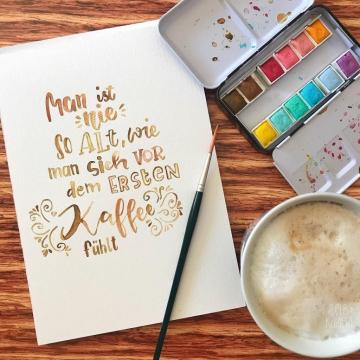 Man ist
nie
so ALt, wie
man sich VOR
dem ERSTEN
Kaffee
fühlt